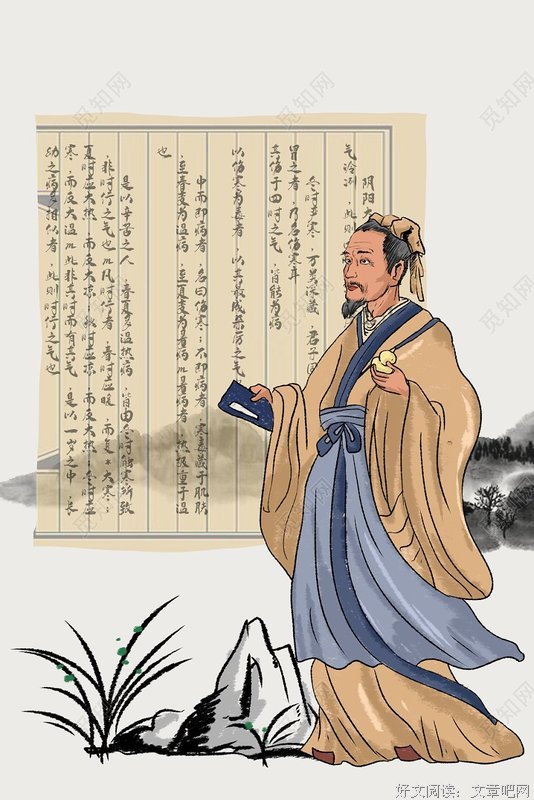 阴阳大
气冷冽，此则
冬时严寒，万类深藏，君子固
冒之者，乃名伤寒耳
其伤于四时之气，皆能为病
以伤寒为毒者，以其最成杀厉之气
中而即病者，名曰伤寒；不即病者，寒毒藏于肌肤
至春变为温病，至夏变为暑病；暑病者，热极重于温
也
是以辛苦之人，春夏多温热病，皆由冬时触寒所致
非时行之气也；凡时行者，春时应暖，而复大寒；
夏时应大热，而反大凉；秋时应凉，而反大热；冬时应
寒，而反大温；此非其时而有其气，是以一岁之中，长
幼之病多相似者，此则时行之气也
觅知网
好文阅读：文章吧网